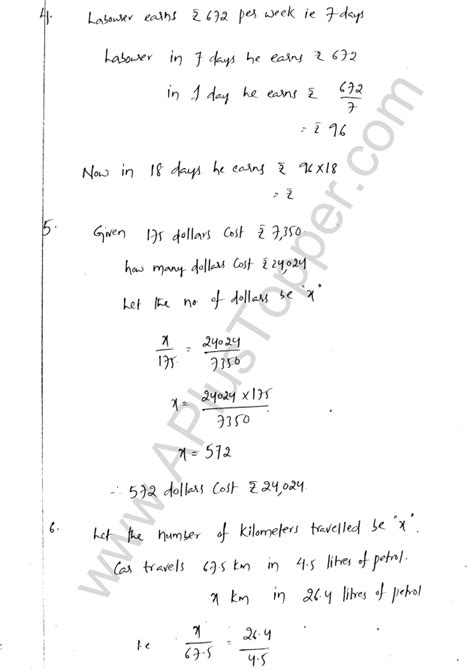 4. Labourer earns ₹ 672 per week ie 7 days
Labourer in 7 days he earns ₹ 672
in 1 day he earns ₹ 672/7
= ₹ 96
Now in 18 days he earns ₹ 96×18
= ₹
5. Given 175 dollars cost ₹ 7,350.
how many dollars cost ₹ 24,024
Let the no of dollars be "x"
x/175 = 24024/7350
x = 24024 × 175/7350
x = 572
∴ 572 dollars cost ₹ 24,024.
6. Let the number of kilometers travelled be "x".
Car travels 67.5 km in 4.5 litres of petrol.
x km in 26.4 litres of petrol
i.e x/67.5 = 26.4/4.5
www.APlusTopper.com